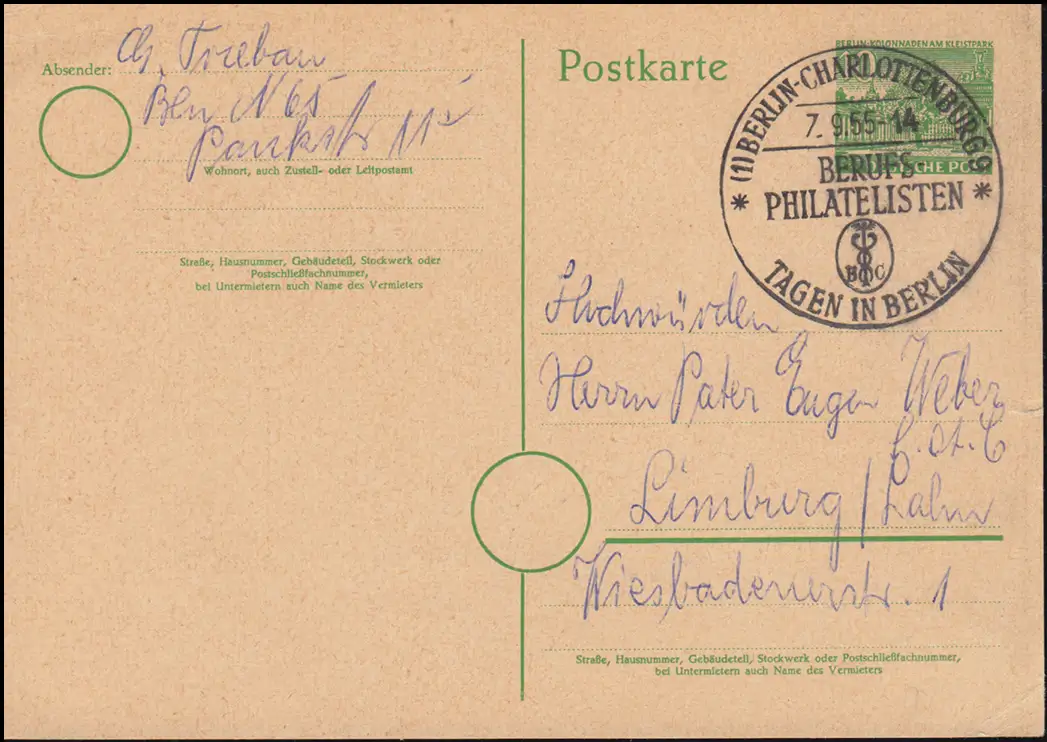 Absender:
Bln N 65
Pankstr 11
Wohnort, auch Zustell- oder Leitpostamt
Straße, Hausnummer, Gebäudeteil, Stockwerk oder
Postschließfachnummer,
bei Untermietern auch Name des Vermieters
Postkarte
BERLIN-KOLONNADEN AM KLEISTPARK
10
DEUTSCHE POST
(1) BERLIN-CHARLOTTENBURG 9
7. 9.55-14
BERUFS
PHILATELISTEN
TAGEN IN BERLIN
Hochwürden
Herrn Pater Eugen Weber
Limburg/Lahn
Wiesbadenerstr. 1
Straße, Hausnummer, Gebäudeteil, Stockwerk oder Postschließfachnummer,
bei Untermietern auch Name des Vermieters